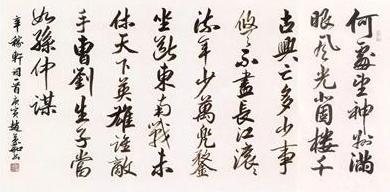 何處望神州滿
眼風光北固樓千
古興亡多少事
悠々不盡長江滾々
流年少萬兜鍪
坐斷東南戰未
休天下英雄誰敵
手曹劉生子當
如孫仲謀
辛稼軒詞一首庚寅趙